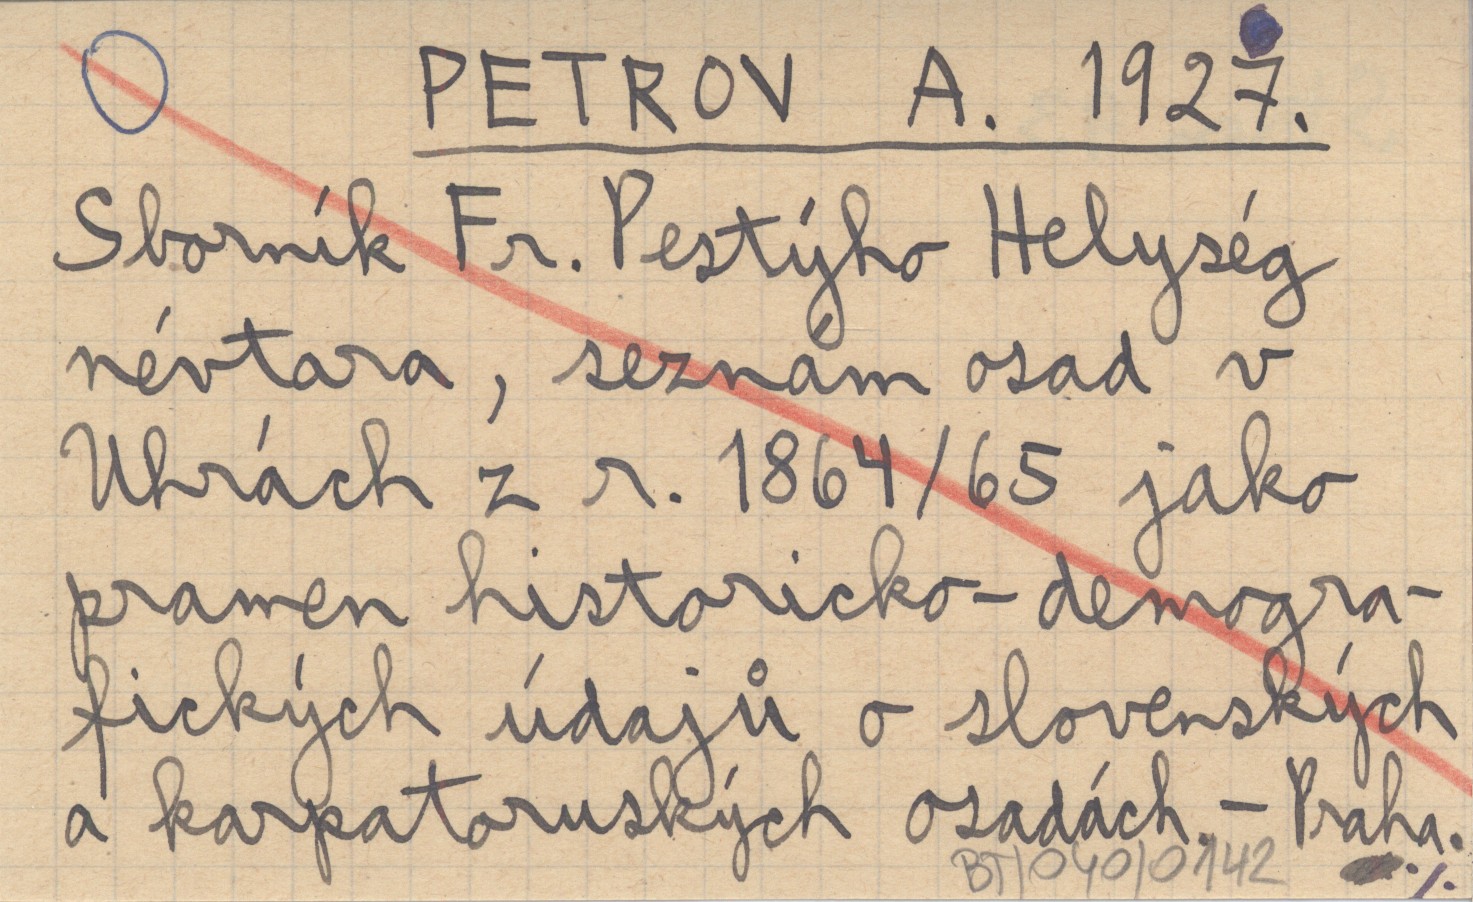 PETROV A. 1927.
Sborník Fr. Pestýho Helység
névtara, seznám osad v
Uhrách z r. 1864/65 jako
pramen historicko-demogra-
fických údajů o slovenských
a karpatoruských osadách. - Praha.
BT/040/0142
./.